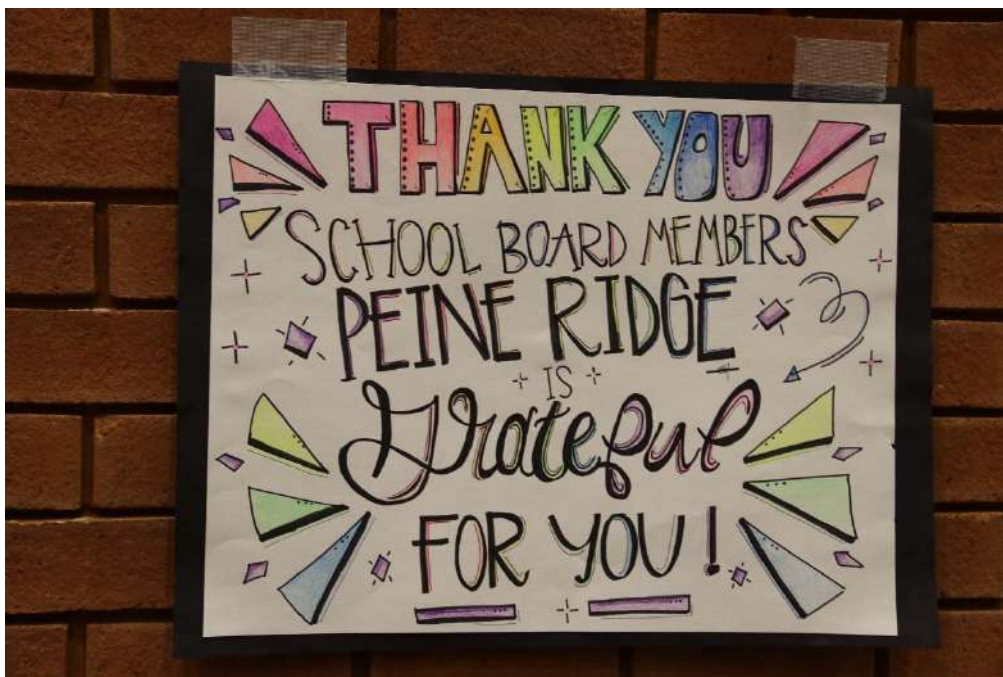 THANK YOU
SCHOOL BOARD MEMBERS
PEINE RIDGE
IS
Grateful
FOR YOU!